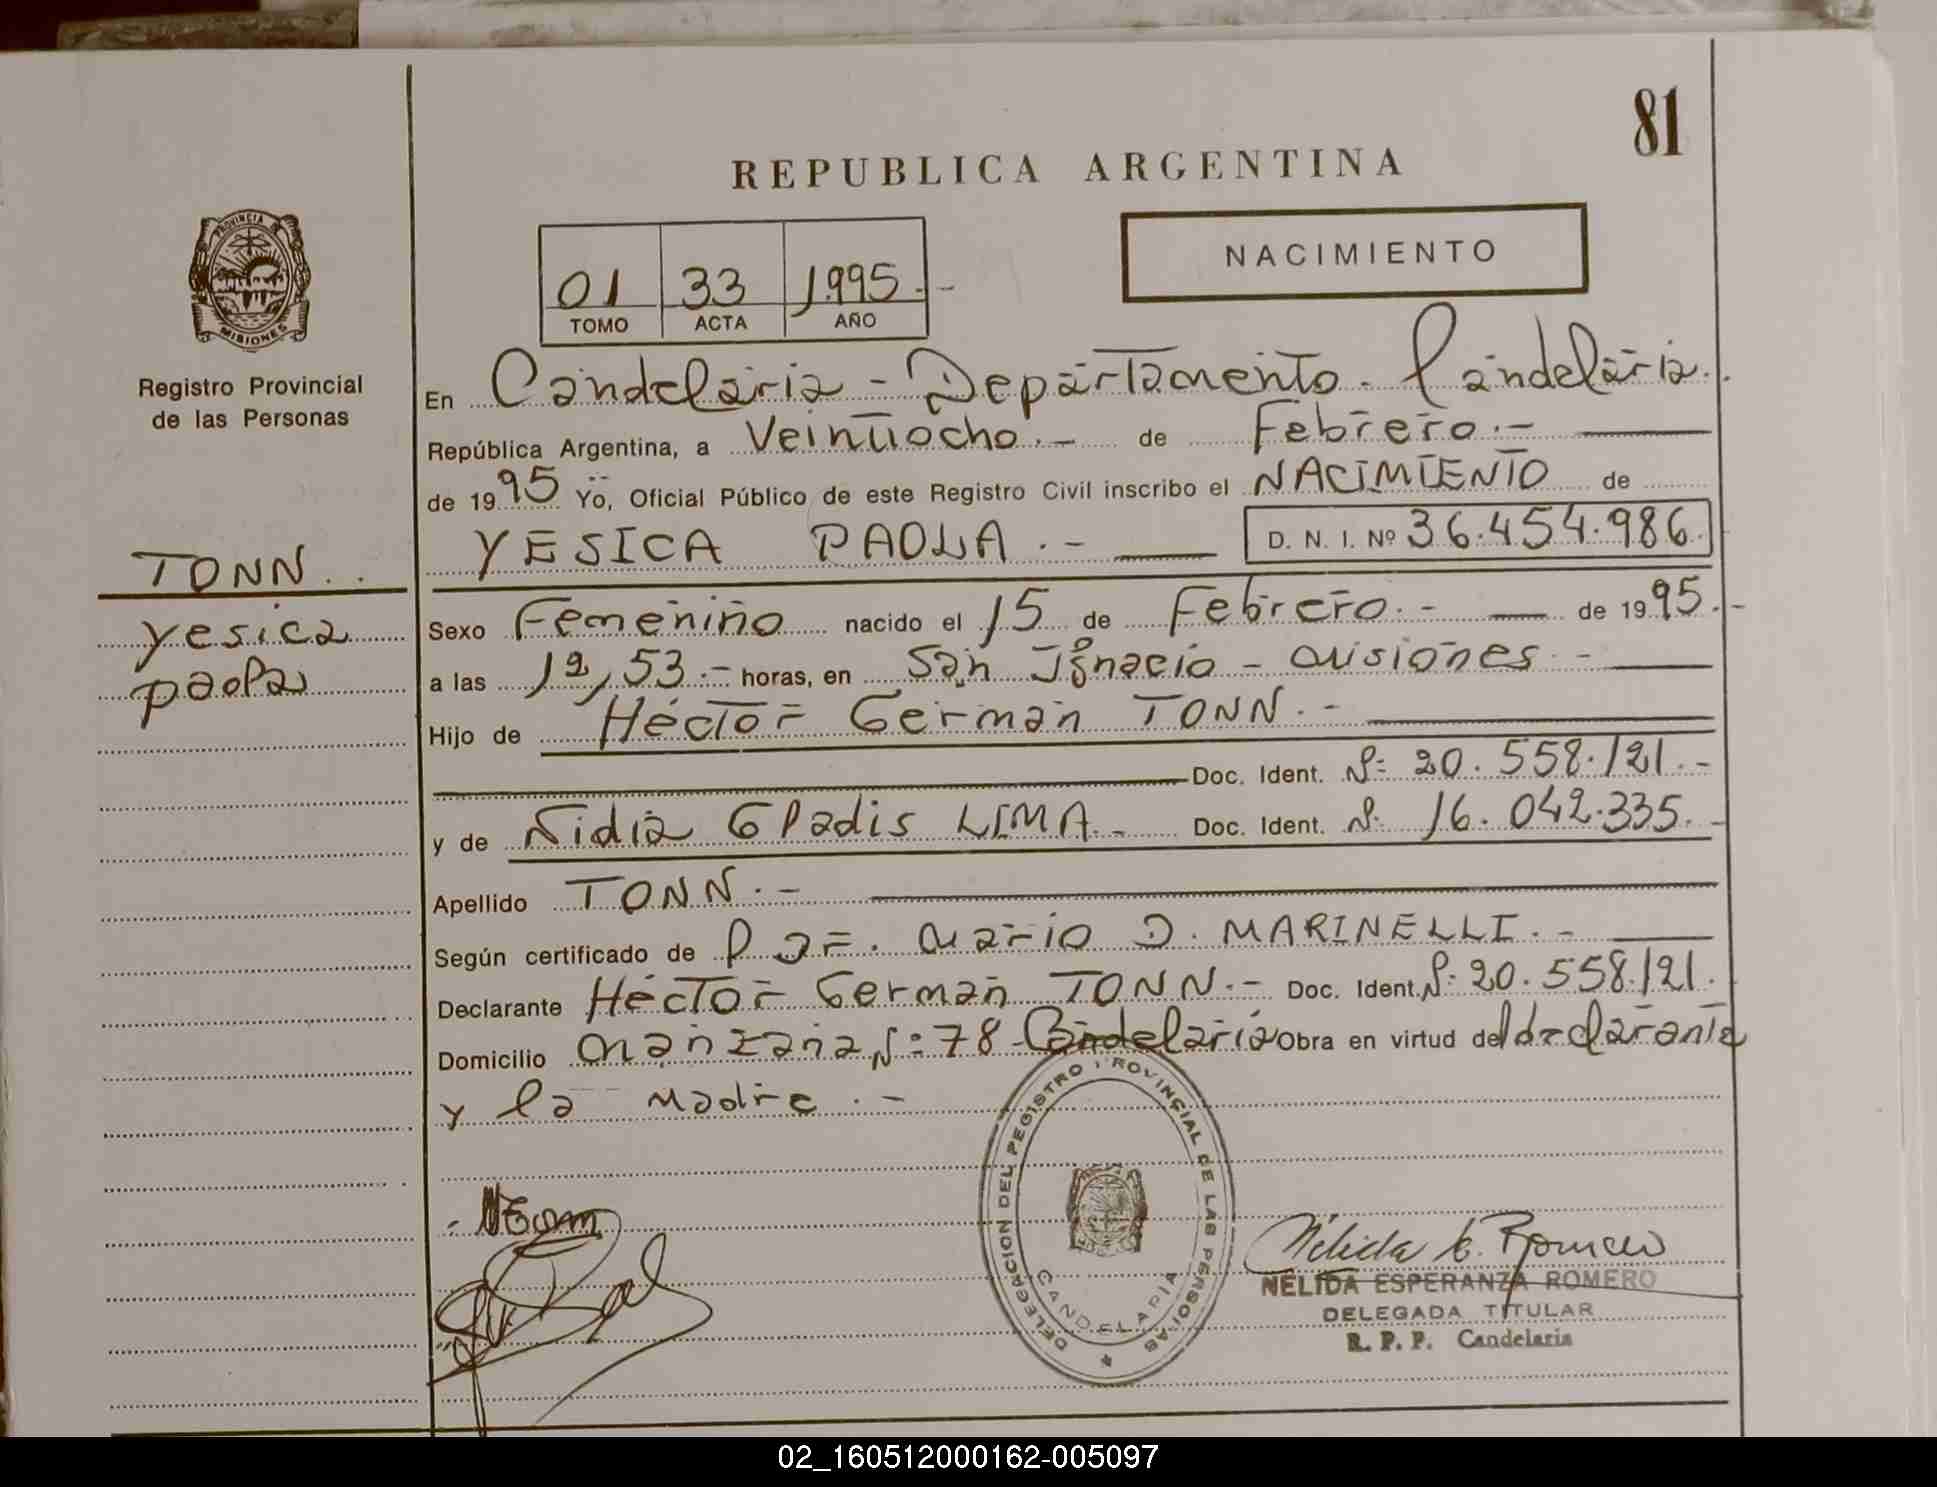 81
REPUBLICA ARGENTINA
PROVINCIA DE
MISIONES
Registro Provincial
de las Personas
01 33 1995.-
TOMO ACTA AÑO
NACIMIENTO
En Candelaria - Departamento. Candelaria.
República Argentina, a Veintiocho.- de Febrero.-
de 1995 Yo, Oficial Público de este Registro Civil inscribo el NACIMIENTO de
YESICA PAOLA.- D. N. I. Nº 36.454.986.
TONN..
Yesica
paola
Sexo Femenino nacido el 15 de Febrero.- de 1995.-
a las 12,53.- horas, en San Ignacio - Misiones -
Hijo de Héctor German TONN.-
Doc. Ident. Nº 20.558.121.-
y de Nidia Gladis LIMA.- Doc. Ident. Nº 16.042.335.-
Apellido TONN.-
Según certificado de Mario D. MARINELLI.-
Declarante Héctor German TONN.- Doc. Ident. Nº 20.558.121.
Domicilio Manzana Nº 78 - Candelaria Obra en virtud del declarante
y la Madre.-
DELEGACION DEL REGISTRO PROVINCIAL DE LAS PERSONAS
CANDELARIA
Nélida E. Romero
NELIDA ESPERANZA ROMERO
DELEGADA TITULAR
R. P. P. Candelaria
02_160512000162-005097